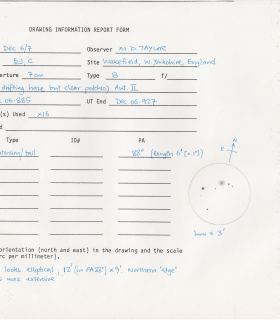 DRAWING INFORMATION REPORT FORM
Dec 6/7 Observer M.D. TAYLOR
Site Wakefield, W. Yorkshire, England
erture 7cm Type B f/
drifting haze, but clear patches) Ant. II
06.885 UT End Dec 06.927
(s) Used x16
Type ID# PA
tension/tail 88° (length 6' (0.1°))
E N
1mm = 3'
orientation (north and east) in the drawing and the scale
rc per millimeter).
looks elliptical, 12' (in PA88°) x 9'. Northern 'edge'
more extensive